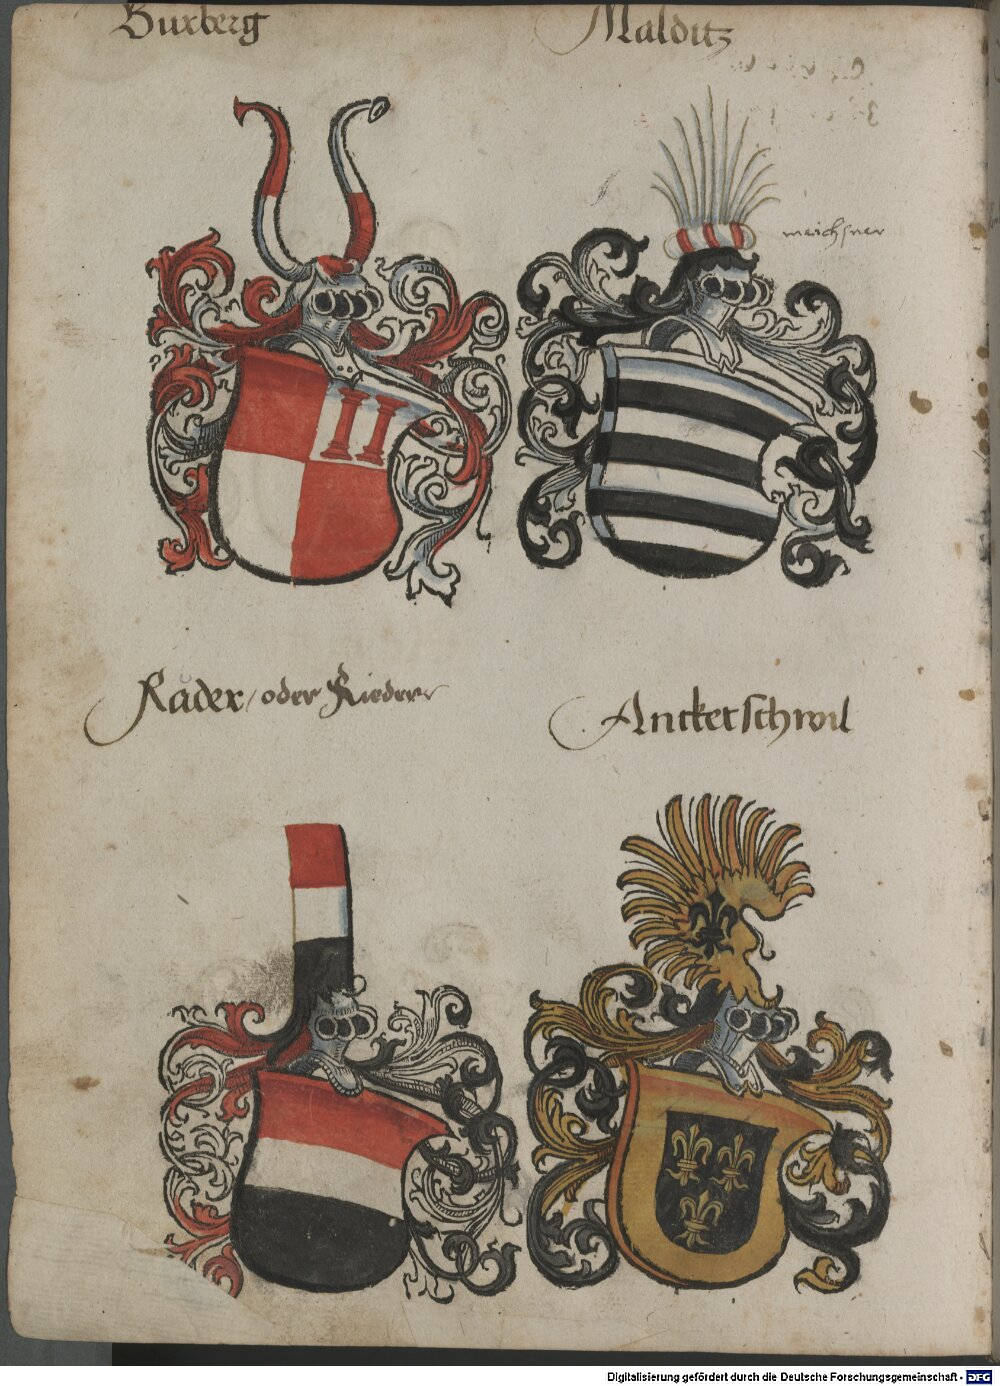 Buxberg
Malditz
meichsner
Råder / oder Rieder
Ancketschwil
Digitalisierung gefördert durch die Deutsche Forschungsgemeinschaft - DFG